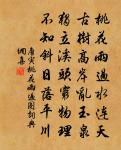 桃花雨過水連天
古樹高岑亂玉泉
獨立溪頭窮物理
不知斜日落平川
唐寅桃花雨過圖詞典